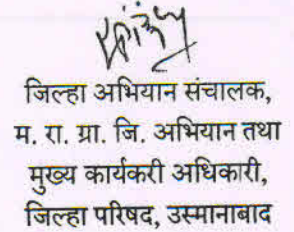 जिल्हा अभियान संचालक,
म. रा. ग्रा. जि. अभियान तथा
मुख्य कार्यकरी अधिकारी,
जिल्हा परिषद, उस्मानाबाद